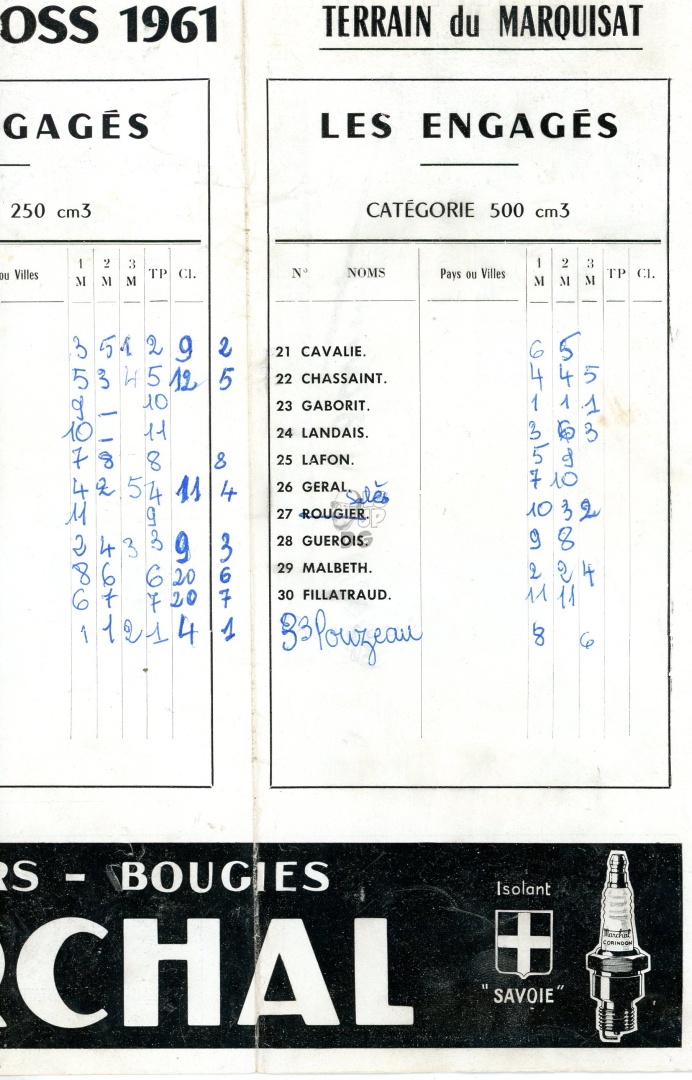 OSS 1961
GAGÉS
250 cm3
ou Villes 1 M 2 M 3 M TP Cl.
3 5 1 2 9 2
5 3 4 5 12 5
9 – 10
10 – 11
7 8 8 8
4 2 5 4 11 4
11 9
2 4 3 3 9 3
8 6 6 20 6
6 7 7 20 7
1 1 2 1 4 1
TERRAIN du MARQUISAT
LES ENGAGÉS
CATÉGORIE 500 cm3
N° NOMS Pays ou Villes 1 M 2 M 3 M TP Cl.
21 CAVALIE. 6 5
22 CHASSAINT. 4 4 5
23 GABORIT. 1 1 1
24 LANDAIS. 3 6 3
25 LAFON. 5 9
26 GERAL. 7 10
27 ROUGIER. 10 3 2
28 GUEROIS. 9 8
29 MALBETH. 2 2 4
30 FILLATRAUD. 11 11
33 Pouzeau 8 6
RS – BOUGIES
RCHAL
Isolant
"SAVOIE"
Marchal
CORINDON